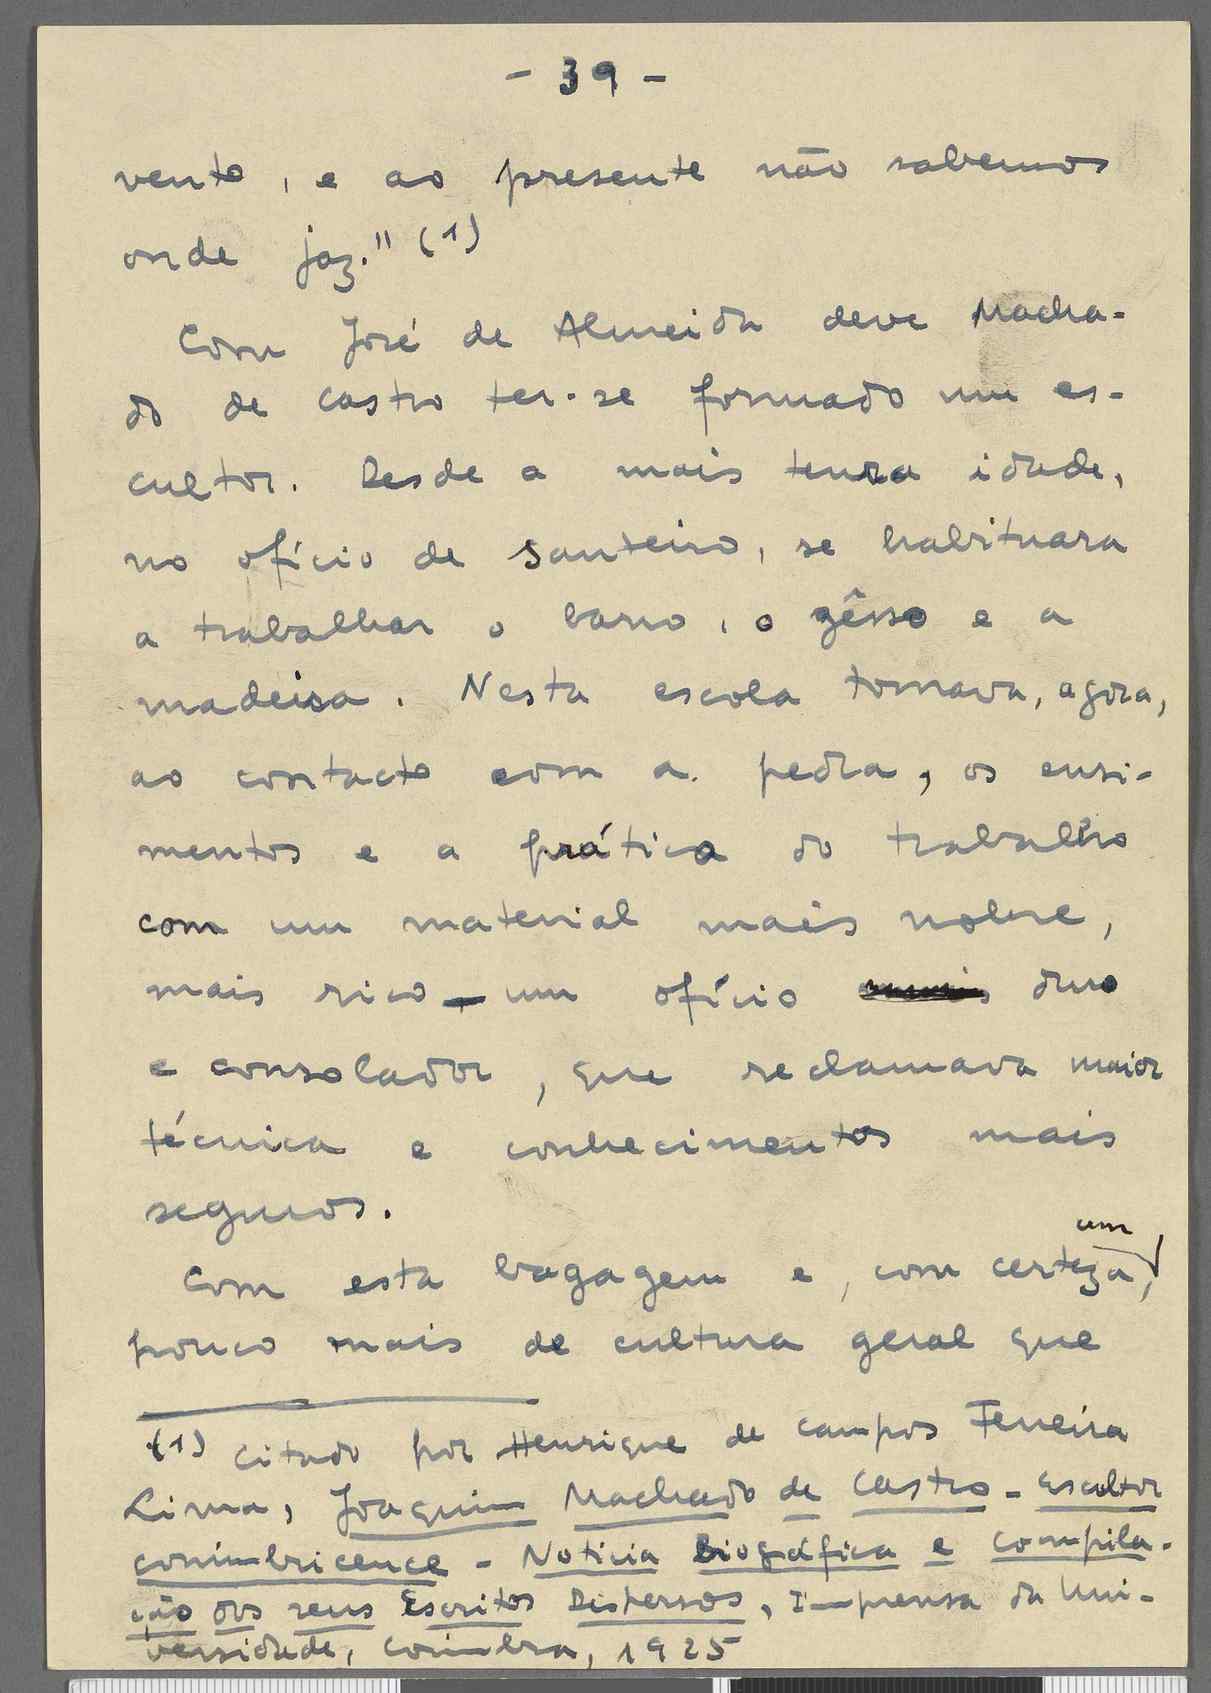 - 39 -
vento, e ao presente não sabemos
onde jaz." (1)
Com José de Almeida deve Macha-
do de Castro ter-se formado um es-
cultor. Desde a mais tenra idade,
no ofício de santeiro, se habituara
a trabalhar o barro, o gêsso e a
madeira. Nesta escola tomava, agora,
ao contacto com a pedra, os ensi-
mentos e a prática do trabalho
com um material mais nobre,
mais rico - um ofício duro
e consolador, que reclamava maior
técnica e conhecimentos mais
seguros.
um
Com esta bagagem e, com certeza,
pouco mais de cultura geral que
(1) Citado por Henrique de Campos Ferreira
Lima, Joaquim Machado de Castro - Escultor
conimbricence - Noticia Biográfica e compila-
ção dos seus Escritos Dispersos, Imprensa da Uni-
versidade, Coimbra, 1925